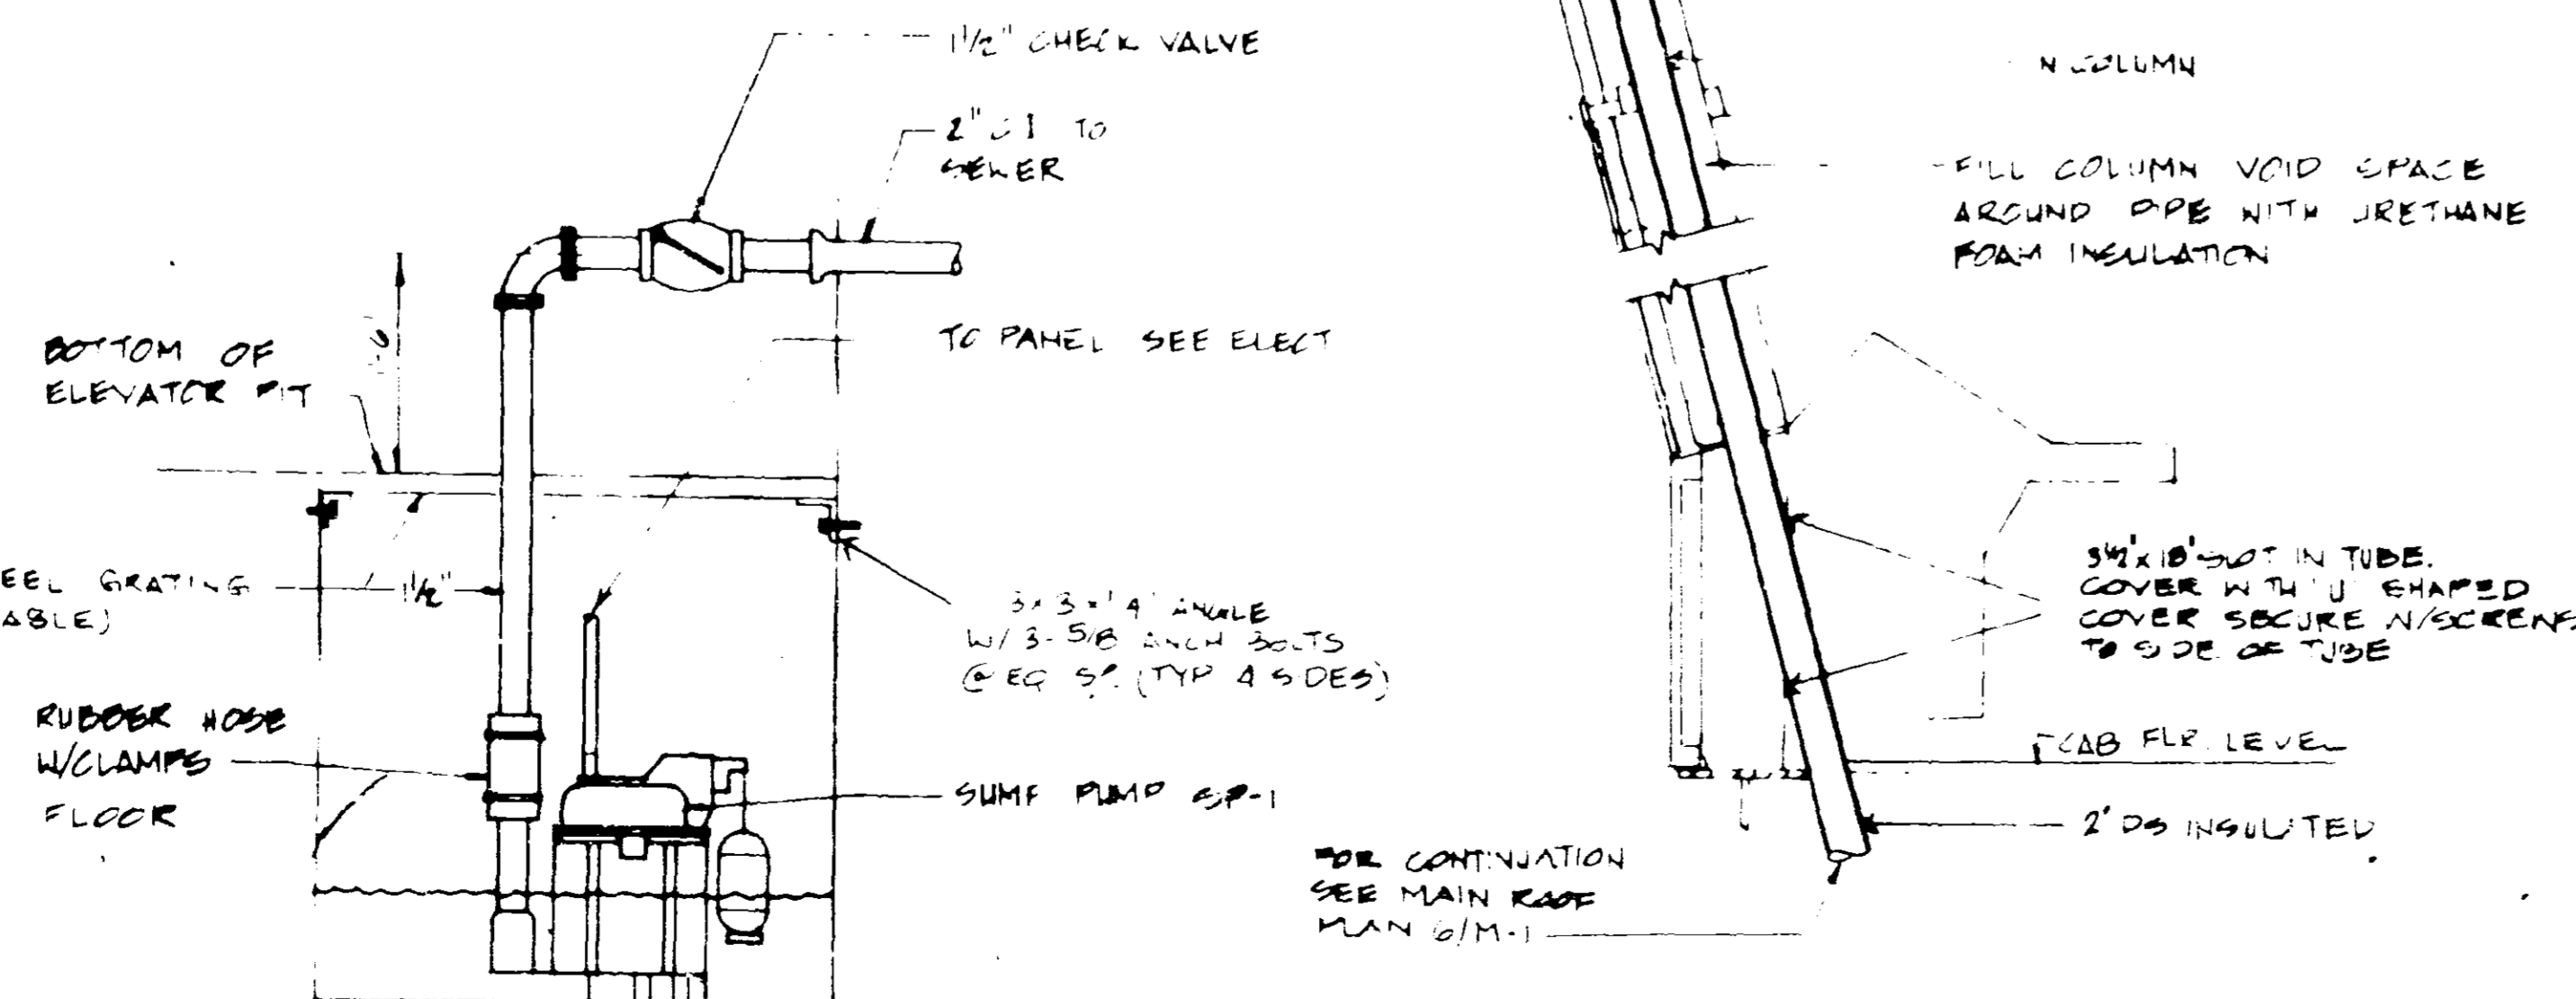 1 1/2" CHECK VALVE
2" C I TO
SEWER
BOTTOM OF
ELEVATOR PIT
TO PANEL SEE ELECT
EEL GRATING
ABLE)
1 1/2"
3 x 3 x 1/4 ANGLE
W/ 3-5/8 ANCH BOLTS
@ EQ SP. (TYP 4 SIDES)
RUBBER HOSE
W/CLAMPS
FLOOR
SUMP PUMP SP-1
N COLUMN
FILL COLUMN VOID SPACE
AROUND PIPE WITH URETHANE
FOAM INSULATION
3 1/2" x 18" SLOT IN TUBE.
COVER WITH 'U' SHAPED
COVER SECURE W/SCREWS
TO SIDE OF TUBE
CAB FLR. LEVEL
2" DS INSULATED
FOR CONTINUATION
SEE MAIN ROOF
PLAN 6/M-1